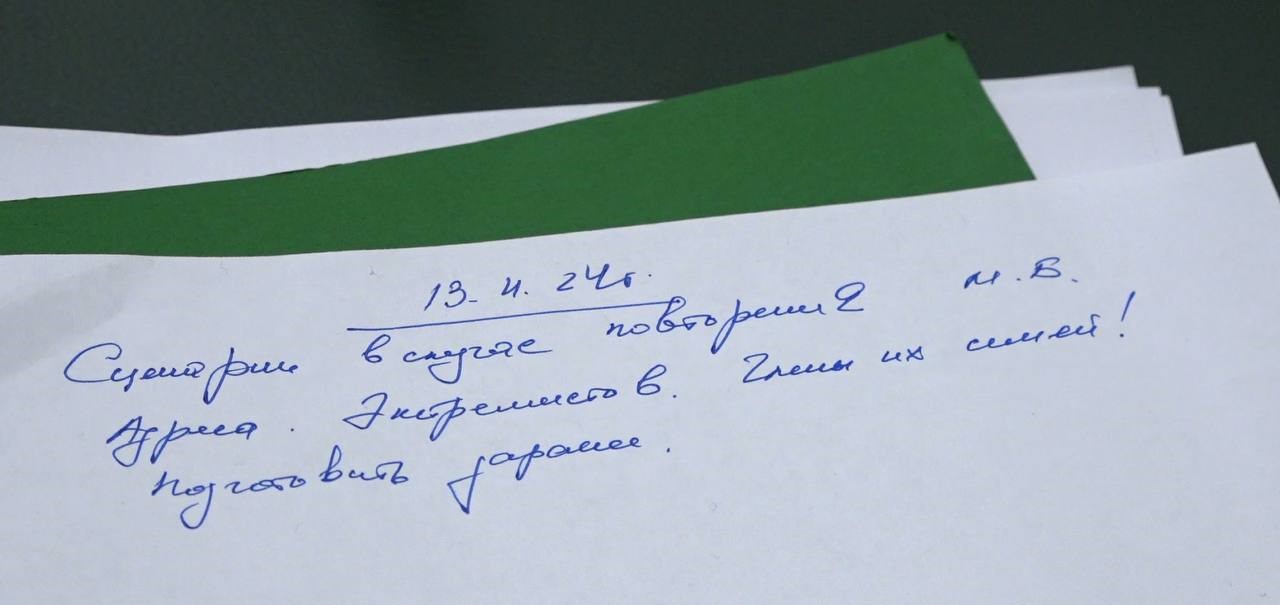 13. 4. 24г.
Сценарии в случае повторения М.В.
Адреса. Экстремистов. Члены их семей!
Подготовить заранее.